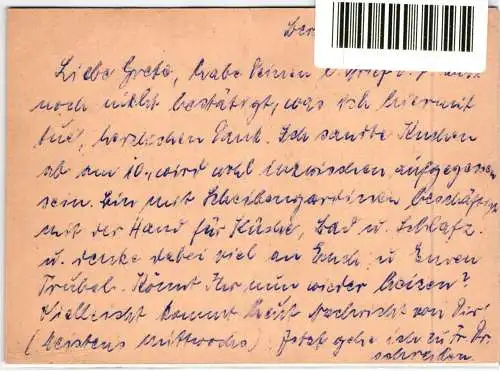 Ber
Liebe Grete, habe Deinen l. Brief v. 7.
noch nicht bestätigt, was ich hiermit
tue, herzlichen Dank. Ich sandte Kuchen
ab am 10., wird wohl inzwischen aufgegessen
sein. Bin mit Scheibengardinen beschäftigt
mit der Hand für Küche, Bad u. Schlafz.
u. denke dabei viel an Euch u. Euren
Trubel. Könnt Ihr nun wieder heizen?
Vielleicht kommt heut Nachricht von Dir!
(Meistens Mittwochs) Jetzt gehe ich zu Fr. Dr.
schreiben.